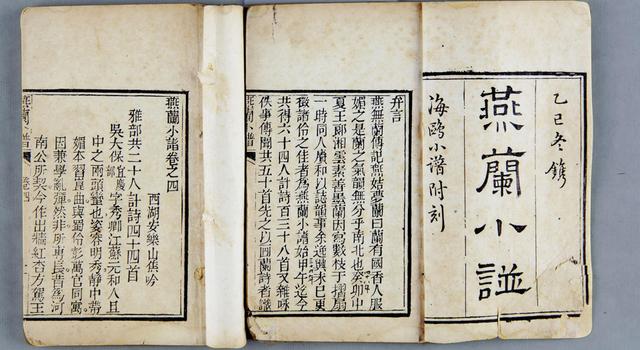 乙巳冬鐫
燕蘭小譜
海鷗小譜附刻
弁言
燕無蘭傳記燕姞夢蘭曰蘭有國香人服
媚之是蘭之氣韻無分乎南北也癸卯中
夏王郎湘雲素善墨蘭因寫數枝于摺扇
一時同人賡和以誌韻事余逸興未已更
徵諸伶之佳者為燕蘭小譜始甲午迄今
共得六十四人計詩百三十八首又雜咏
佚事傳聞共五十首先之以畫蘭詩者識
燕蘭小譜卷之四
西湖安樂山樵吟
雅部共二十人計詩四十四首
吳大保宜慶部字秀卿江蘇元和人且
中之兩頭蠻也姿容明秀靜中帶
媚本習崑曲與蜀伶彭萬官同寓
因兼學亂彈然非所專長昔為河
南公所契今作出牆紅杏方駕王
卷四